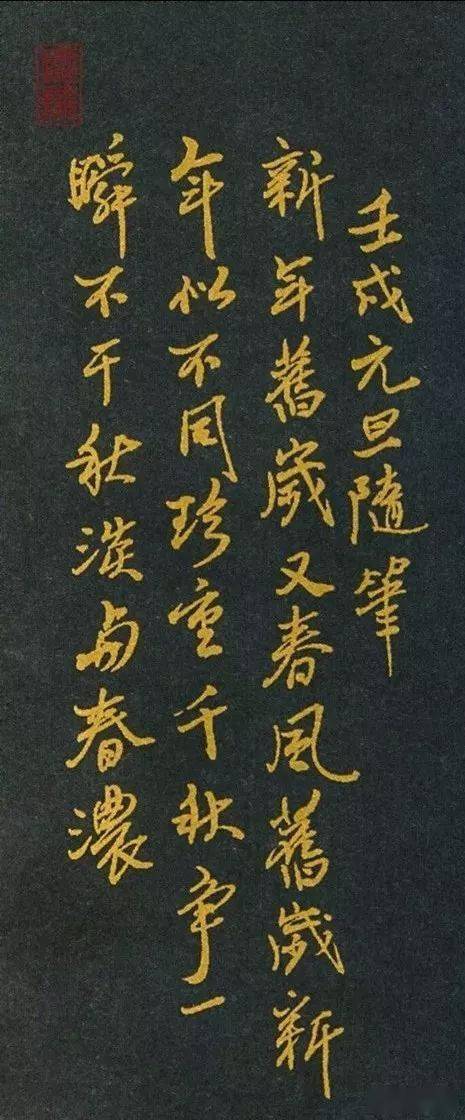 壬戌元旦隨筆
新年舊歲又春風舊歲新
年似不同珍重千秋爭一
瞬不干秋淡与春濃